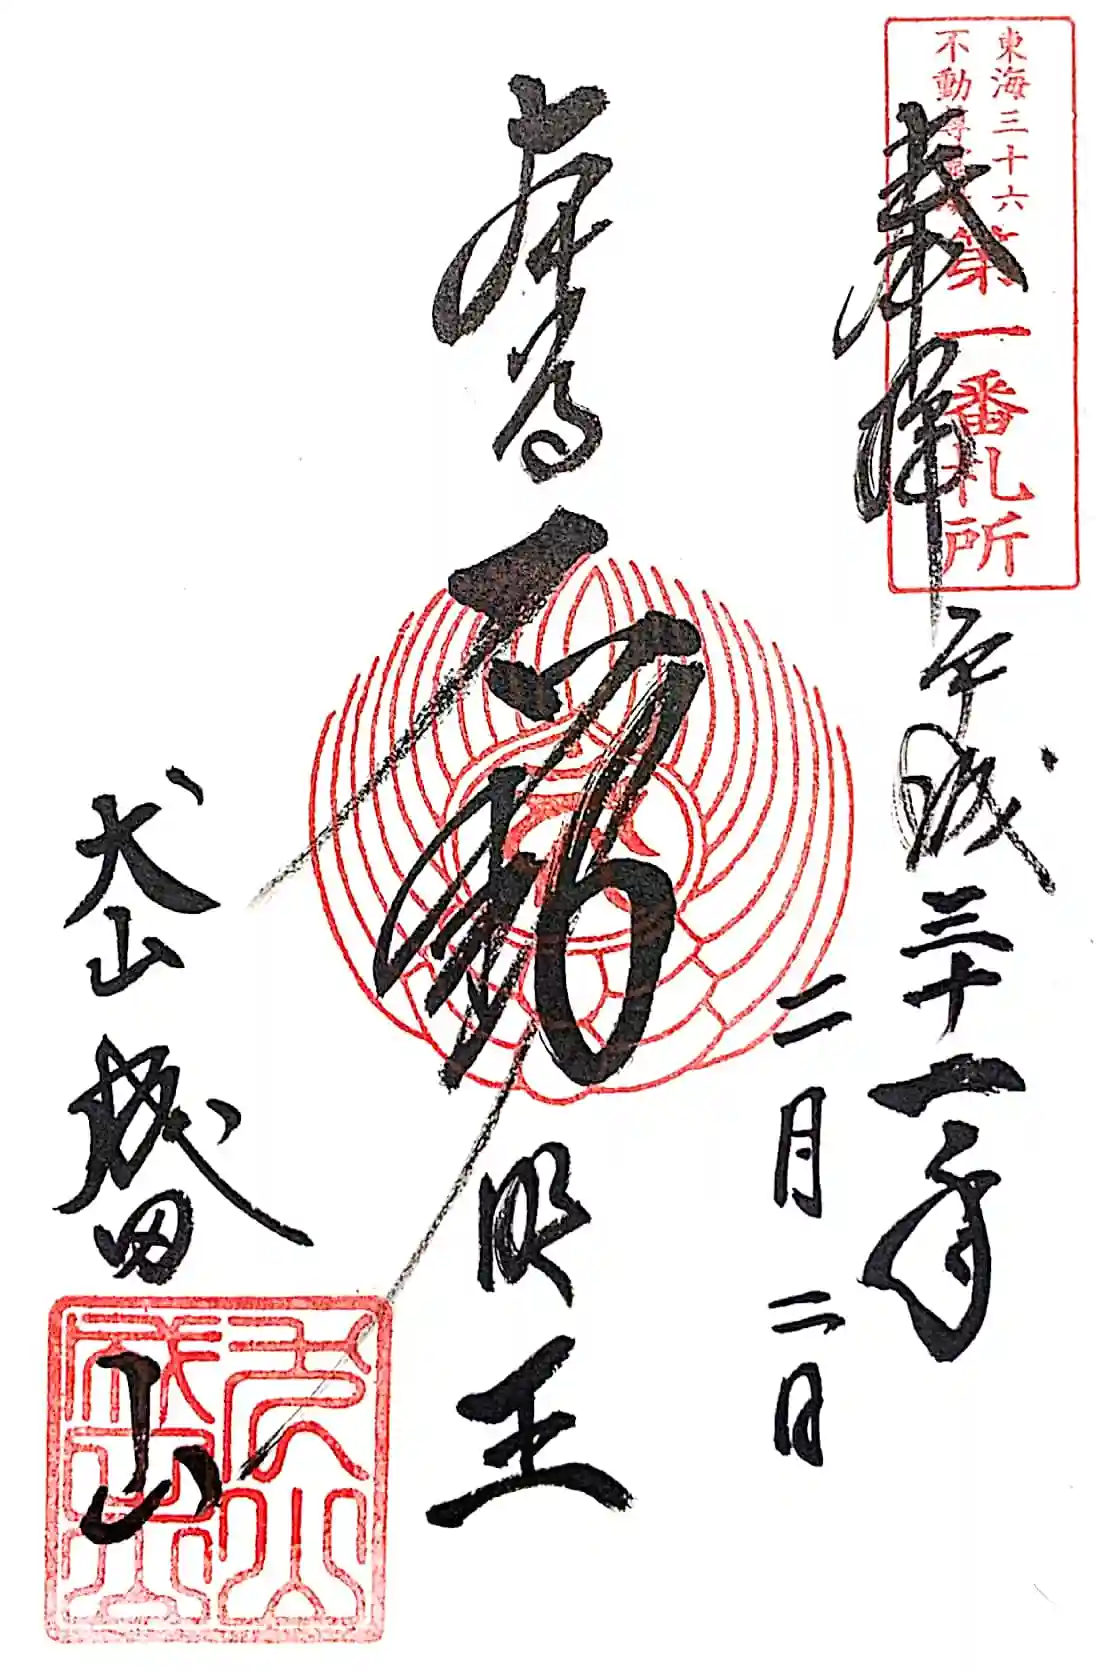 東海三十六
不動尊霊場
第一番札所
奉拝
平成三十一年
二月二日
本尊
不動明王
犬山成田山